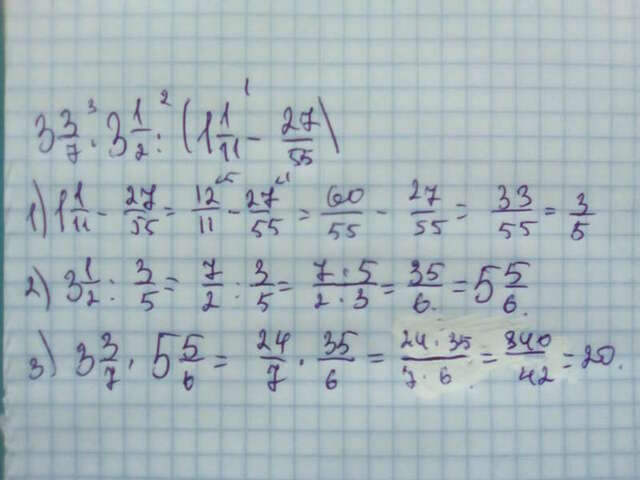 3 3/7 · 3 1/2 : (1 1/11 - 27/55)
1) 1 1/11 - 27/55 = 12/11 - 27/55 = 60/55 - 27/55 = 33/55 = 3/5
2) 3 1/2 : 3/5 = 7/2 : 3/5 = 7·5/2·3 = 35/6 = 5 5/6
3) 3 3/7 · 5 5/6 = 24/7 · 35/6 = 24·35/7·6 = 840/42 = 20.